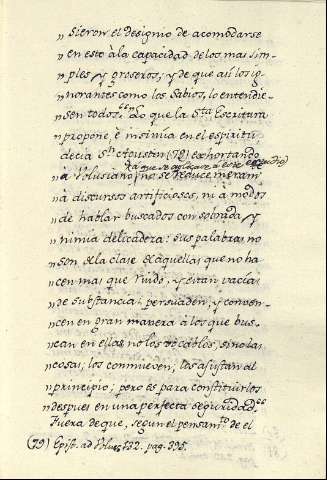 „ sieron el designio de acomodarse
„ en esto à la capacidad de los mas sim-
„ ples, y groseros, y de que asi los ig-
„ norantes como los Sabios, lo entendie-
„ sen todos. Lo que la S.ta Escritura
„ propone, è insinua en el espiritu
decia S.n Agustin (79) exhortando
„ à Volusiano no se reduce meram.
„ à discursos artificiosos, ni à modos
„ de hablar buscados con sobrada, y
„ nimia delicadeza: sus palabras no
„ son de la clase de aquellas que no ha-
„ cen mas que ruido, y estan vacias
„ de substancia; persuaden, y conven-
„ cen en gran manera à los que bus-
„ can en ellas no los vocablos, sino las
„ cosas; los conmueven, los asustan al
„ principio; pero es para constituirlos
„ despues en una perfecta seguridad.
Fuera de que, segun el pensam.to de el
(79) Epist. ad Volus. 132. pag. 395.